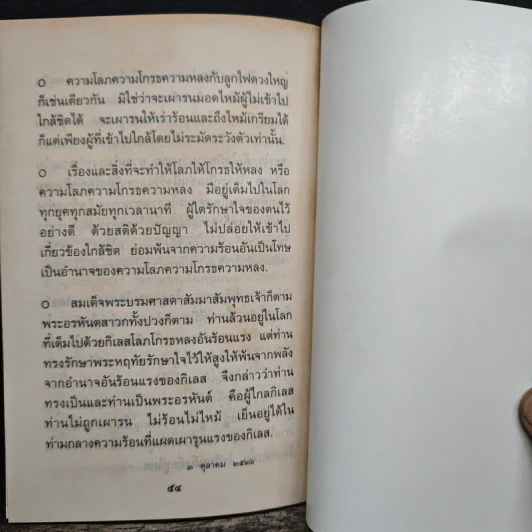 ○ ความโลภความโกรธความหลงกับลูกไฟดวงใหญ่
ก็เช่นเดียวกัน มิใช่ว่าจะเผารนมอดไหม้ผู้ไม่เข้าไป
ใกล้ชิดได้ จะเผารนให้เร่าร้อนและถึงไหม้เกรียมได้
ก็แต่เพียงผู้ที่เข้าไปใกล้โดยไม่ระมัดระวังตัวเท่านั้น.
○ เรื่องและสิ่งที่จะทำให้โลภให้โกรธให้หลง หรือ
ความโลภความโกรธความหลง มีอยู่เต็มไปในโลก
ทุกยุคทุกสมัยทุกเวลานาที ผู้ใดรักษาใจของตนไว้
อย่างดี ด้วยสติด้วยปัญญา ไม่ปล่อยให้เข้าไป
เกี่ยวข้องใกล้ชิด ย่อมพ้นจากความร้อนอันเป็นโทษ
เป็นอำนาจของความโลภความโกรธความหลง.
○ สมเด็จพระบรมศาสดาสัมมาสัมพุทธเจ้าก็ตาม
พระอรหันตสาวกทั้งปวงก็ตาม ท่านล้วนอยู่ในโลก
ที่เต็มไปด้วยกิเลสโลภโกรธหลงอันร้อนแรง แต่ท่าน
ทรงรักษาพระหฤทัยรักษาใจไว้ให้สูงให้พ้นจากพลัง
จากอำนาจอันร้อนแรงของกิเลส จึงกล่าวว่าท่าน
ทรงเป็นและท่านเป็นพระอรหันต์ คือผู้ไกลกิเลส
ท่านไม่ถูกเผารน ไม่ร้อนไม่ไหม้ เย็นอยู่ได้ใน
ท่ามกลางความร้อนที่แผดเผารุนแรงของกิเลส.
๓ ตุลาคม ๒๕๓๖
๕๔